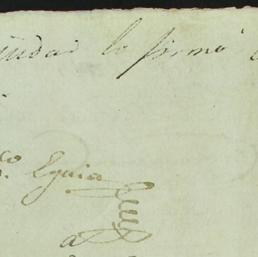 ciudad lo firmó
co. Eguia
a